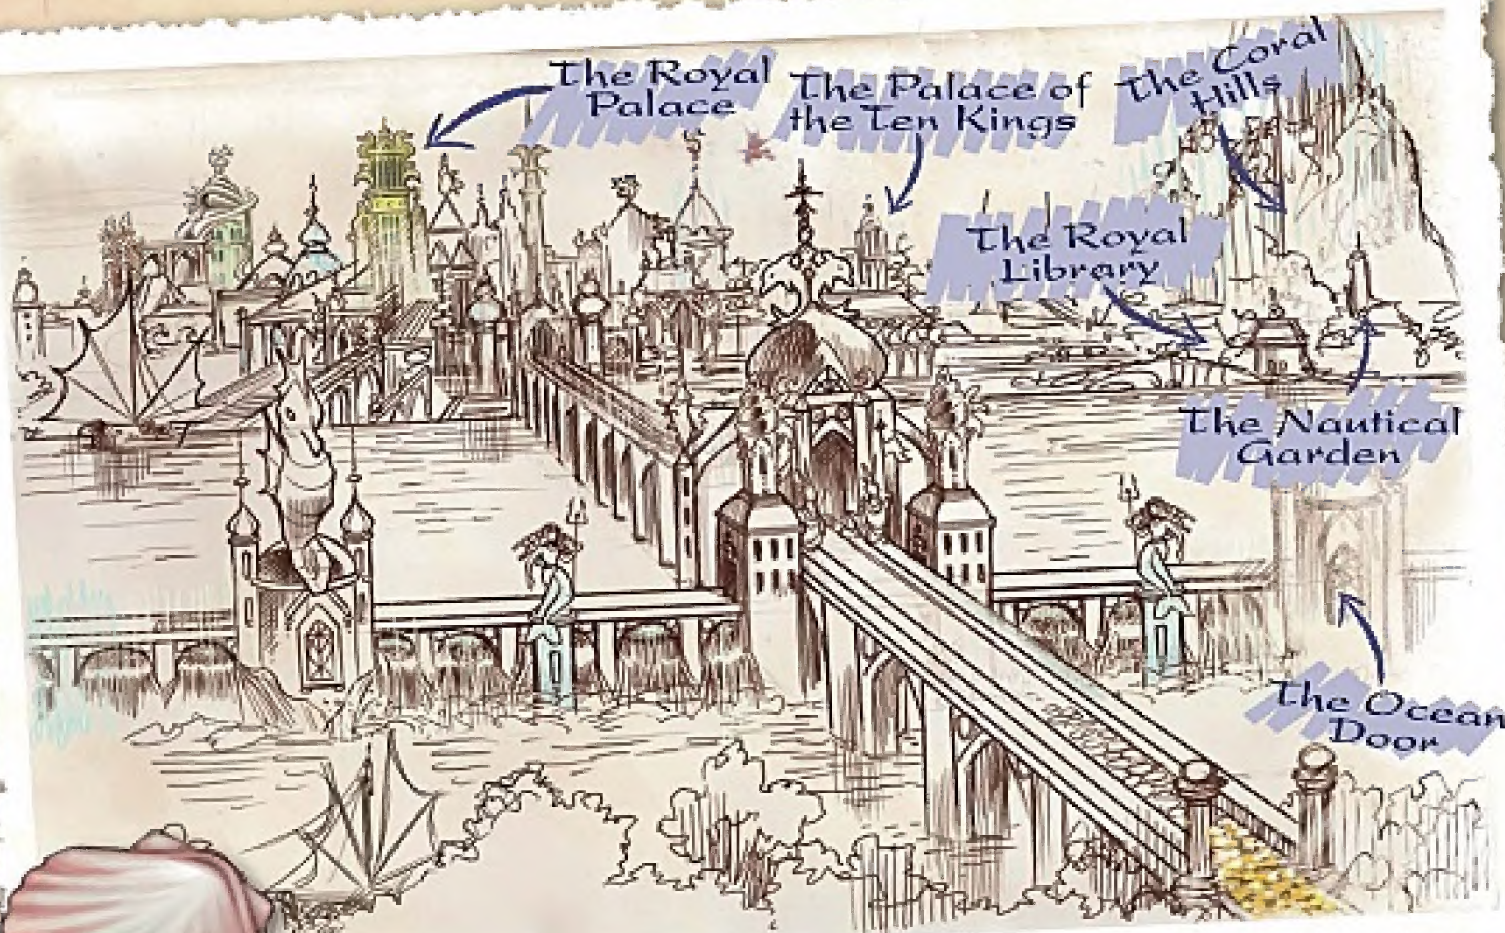 The Royal
Palace
The Palace of
the Ten Kings
The Coral
Hills
The Royal
Library
The Nautical
Garden
The Ocean
Door